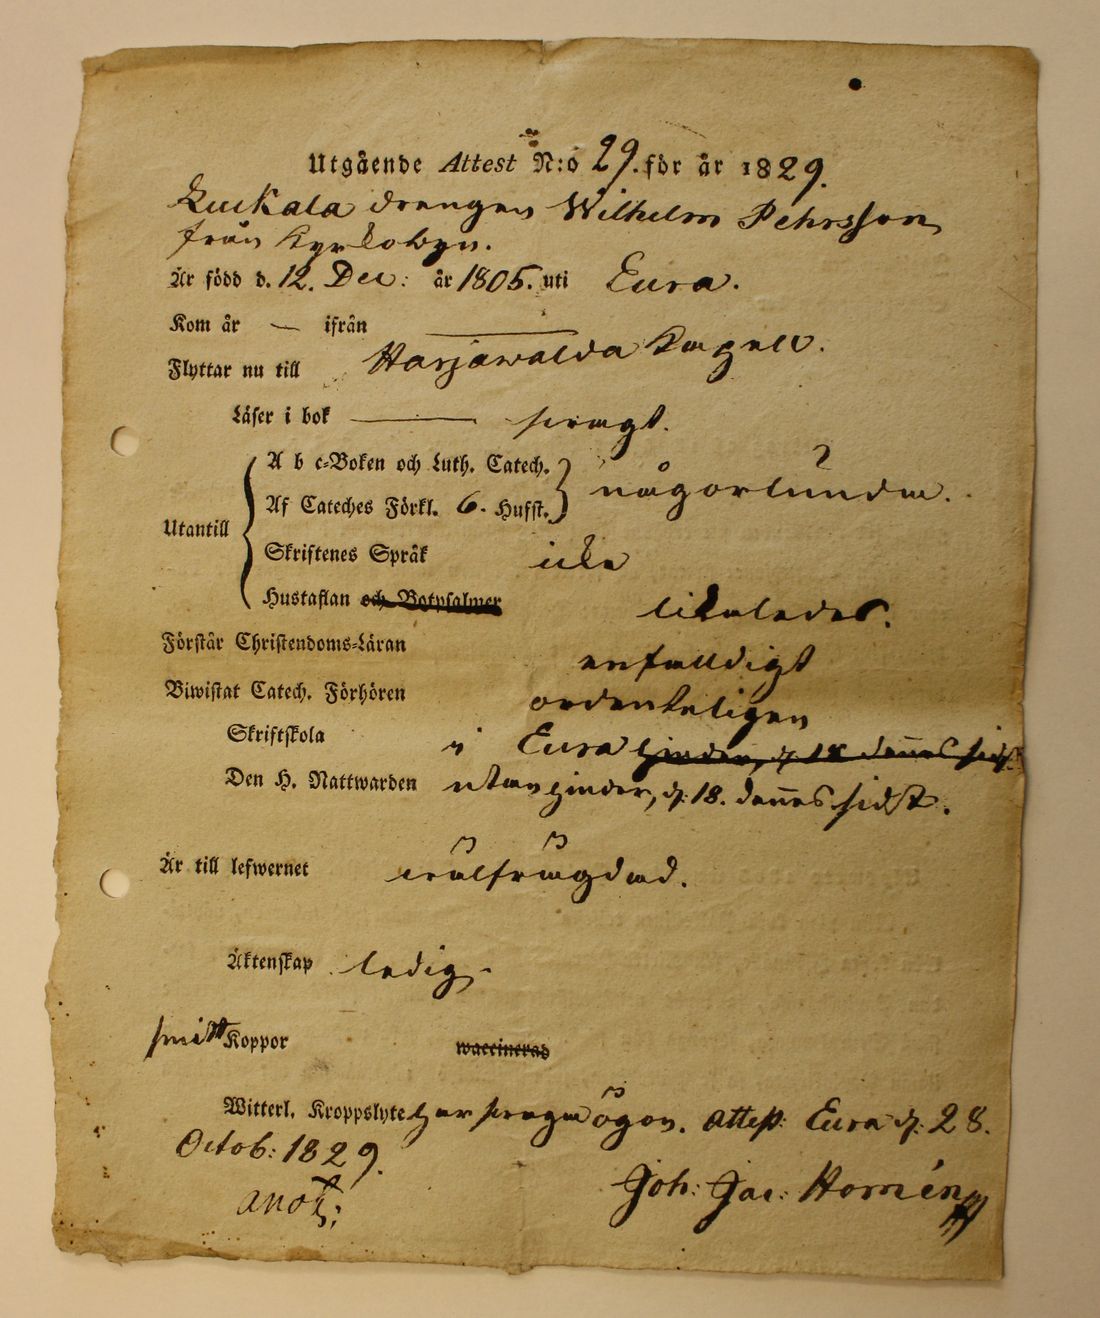 Utgående Attest N:o 29. för år 1829.
Luckala drengen Wilhelm Pehrsson
från Kyrkobyn.
Är född d. 12. Dec: år 1805. uti Eura.
Kom år — ifrån —
Flyttar nu till Harjawalda Kapell.
Läser i bok — swagt.
A b c-Boken och Luth. Catech.
Af Cateches Förkl. 6. Hufst. någorlunda.
Utantill
Skriftenes Språk icke
Hustaflan och Botpsalmer likaledes.
Förstår Christendoms-Läran enfalldigt
Biwistat Catech. Förhören ordenteligen
Skriftskola i Eura hinder, d. 18 dennes sidst
Den H. Nattwarden utan hinder, d. 18. dennes sidst.
Är till lefwernet wälfrägdad.
Äktenskap ledig.
smitt Koppor waccinerad
Witterl. Kroppslyte har swaga ögon. attest: Eura d. 28.
Octob: 1829.
Joh: Jac: Homén
anot: